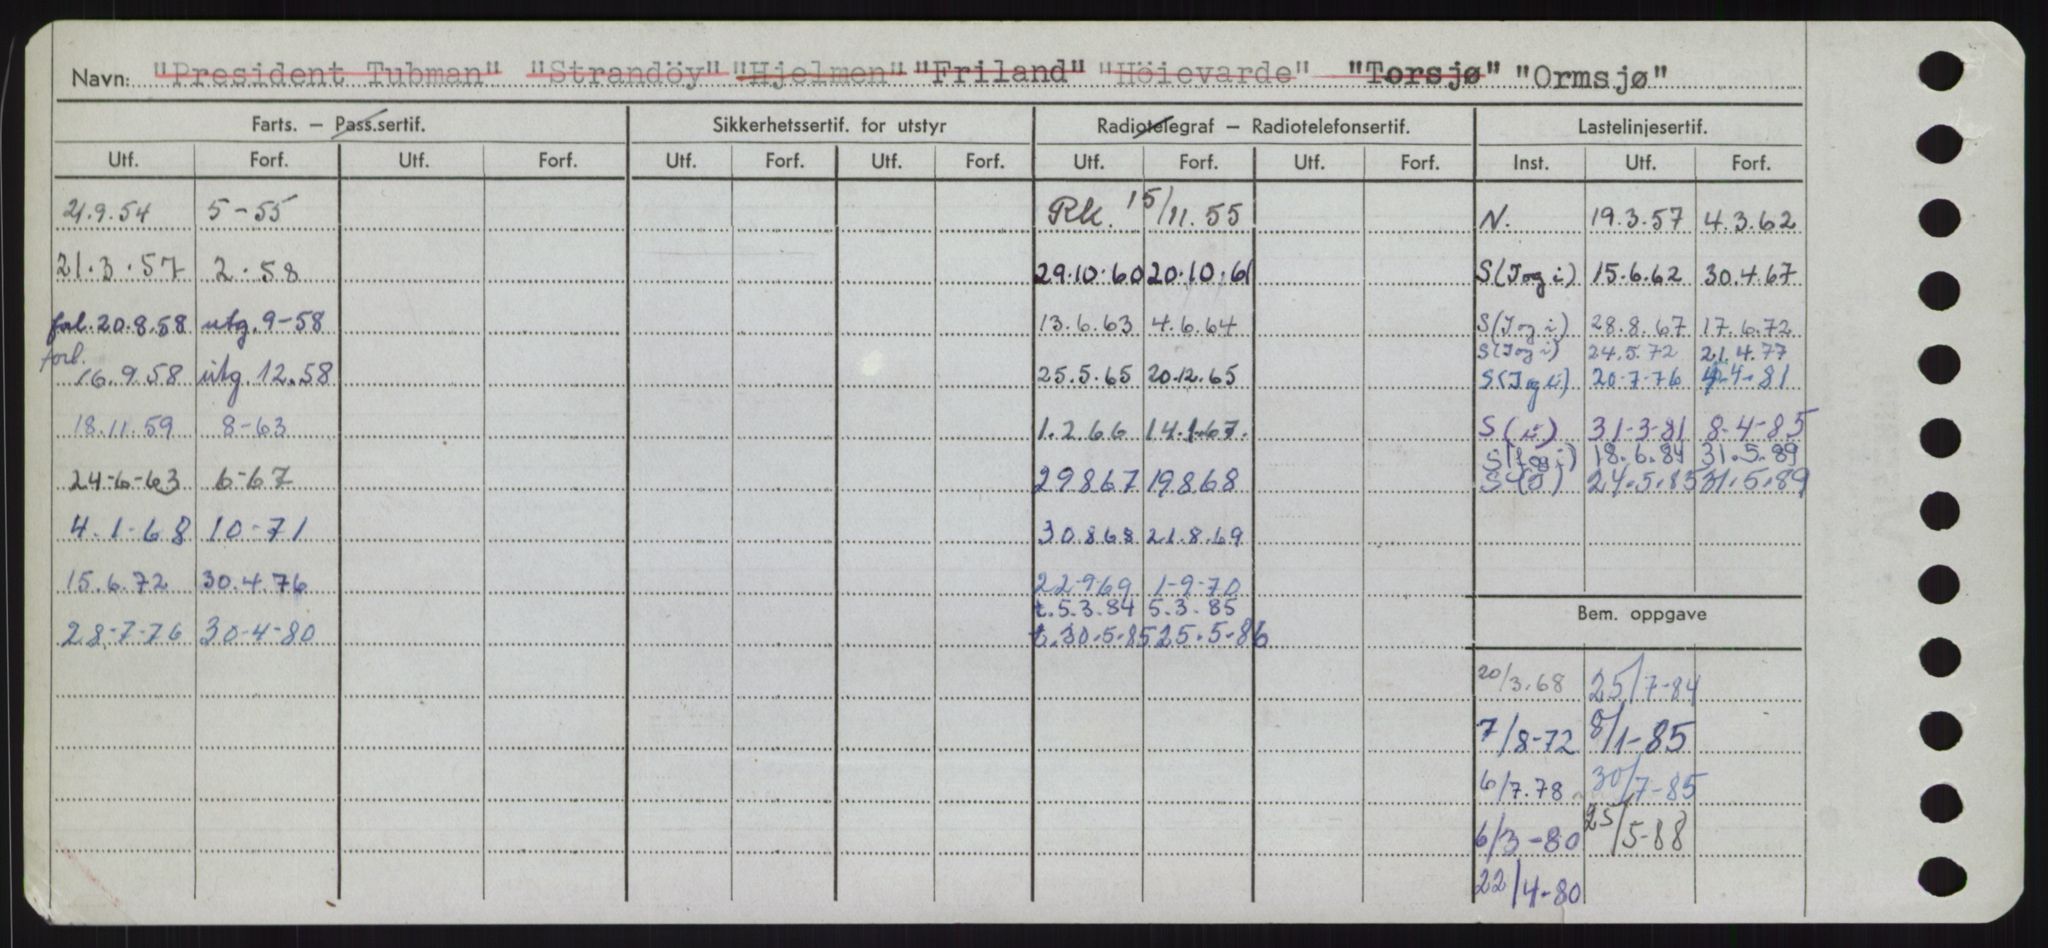 Navn: "President Tubman" "Strandöy" "Hjelmen" "Friland" "Höievarde" "Torsjø" "Ormsjø"
Farts. – Pass.sertif. Sikkerhetssertif. for utstyr Radiotelegraf – Radiotelefonsertif. Lastelinjesertif.
Utf. Forf. Utf. Forf. Utf. Forf. Utf. Forf. Utf. Forf. Utf. Forf. Inst. Utf. Forf.
21.9.54 5-55 RK. 15/11.55 N. 19.3.57 4.3.62
21.3.57 2.58 29.10.60 20.10.61 S(I og i) 15.6.62 30.4.67
forl. 20.8.58 utg. 9-58 13.6.63 4.6.64 S(I og i) 28.8.67 17.6.72
S(I og i) 24.5.72 21.4.77
forl. 16.9.58 utg. 12.58 25.5.65 20.12.65 S(I og i) 20-7-76 4-4-81
18.11.59 8-63 1.2.66 14.1.67. S(i) 31-3-81 8-4-85
S(I og i) 18.6.84 31.5.89
24-6-63 6-67 29867 19868 S(I) 24.5.85 31.5.89
4.1-68 10-71 30868 21.8.69
15.6.72 30.4.76 22-969 1-9-70
t. 5.3.84 5.3.85
Bem. oppgave
28-7-76 30-4-80 t. 30.5.85 25.5-86
20/3.68 25/7-84
7/8-72 8/1-85
6/7.78 30/7-85
6/3-80 25/5-88
22/4-80